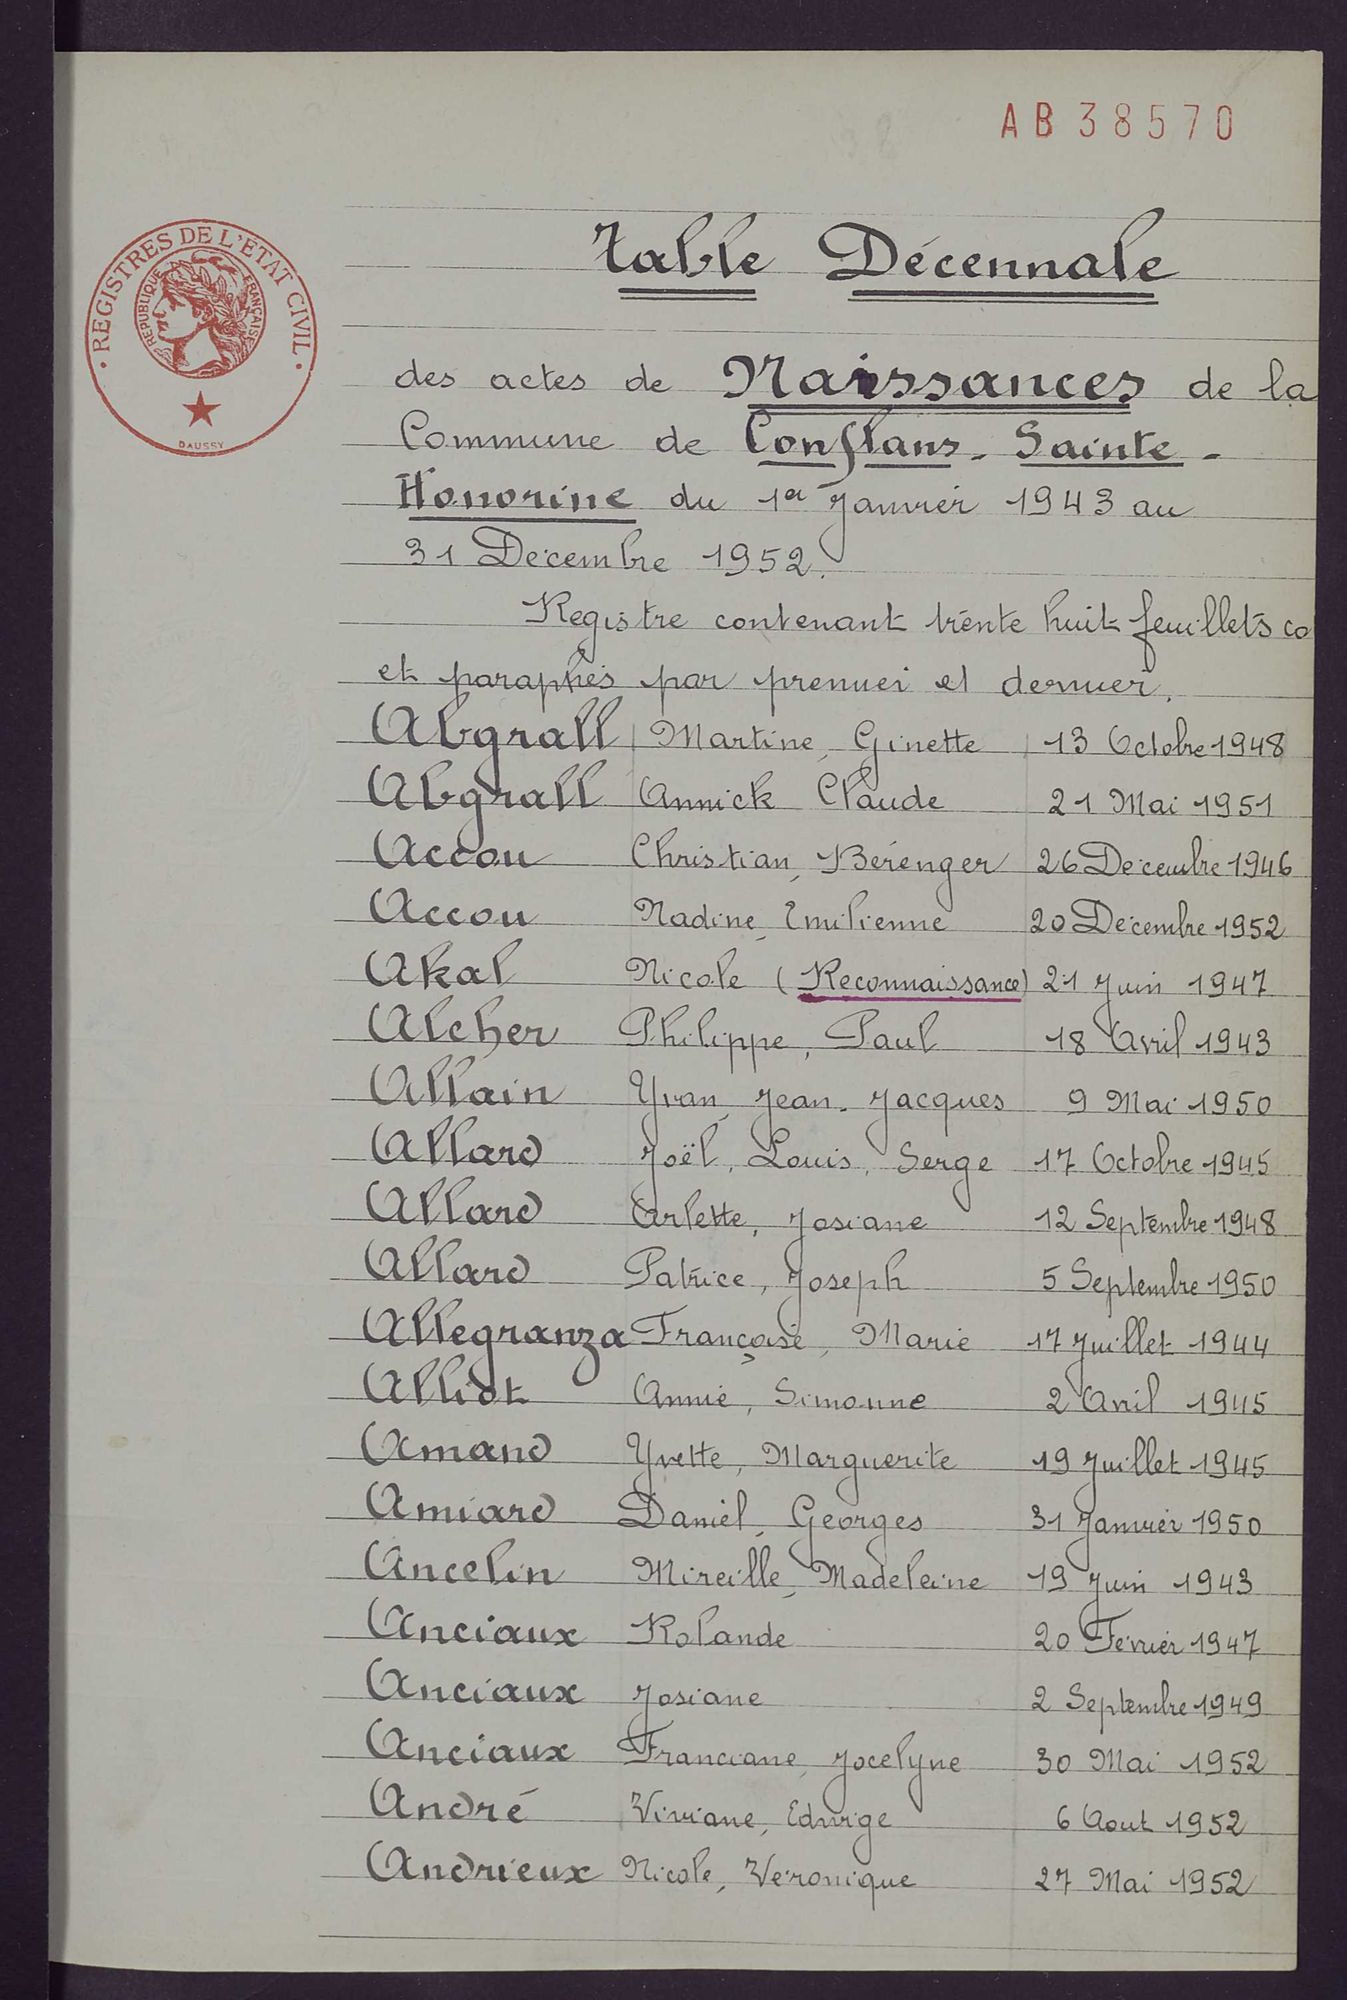 AB 38570
REGISTRES DE L'ETAT CIVIL
REPUBLIQUE FRANÇAISE
DAUSSY
Table Décennale
des actes de Naissances de la
Commune de Conflans - Sainte -
Honorine du 1er Janvier 1943 au
31 Décembre 1952.
Registre contenant trente huit feuillets co
et paraphés par premier et dernier.
Abgrall Martine, Ginette 13 Octobre 1948
Abgrall Annick Claude 21 Mai 1951
Accou Christian, Bérenger 26 Décembre 1946
Accou Nadine, Emilienne 20 Décembre 1952
Akal Nicole (Reconnaissance) 21 Juin 1947
Alcher Philippe, Paul 18 Avril 1943
Allain Yvan, Jean-Jacques 9 Mai 1950
Allard Joël, Louis, Serge 17 Octobre 1945
Allard Arlette, Josiane 12 Septembre 1948
Allard Patrice, Joseph 5 Septembre 1950
Allegranza Françoise, Marie 17 Juillet 1944
Alliot Annie, Simonne 2 Avril 1945
Amand Yvette, Marguerite 19 Juillet 1945
Amiard Daniel, Georges 31 Janvier 1950
Ancelin Mireille, Madeleine 19 Juin 1943
Anciaux Rolande 20 Février 1947
Anciaux Josiane 2 Septembre 1949
Anciaux Franciane, Jocelyne 30 Mai 1952
André Viviane, Edwige 6 Aout 1952
Andrieux Nicole, Véronique 27 Mai 1952